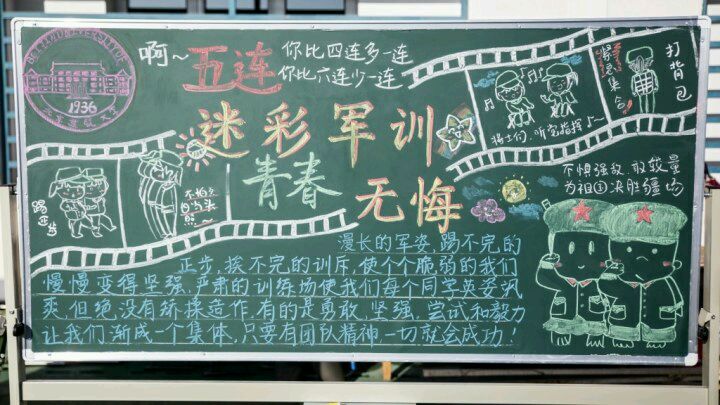 啊~五连
你比四连多一连
你比六连少一连
迷彩军训
青春
无悔
1936
紧急集合
打背包
踢正步
不怕
骑士们,听党指挥!
不怕强敌,敢较量
为祖国决胜疆场
漫长的军姿,踢不完的
正步,挨不完的训斥,使个个脆弱的我们
慢慢变得坚强,严肃的训练场使我们每个同学英姿飒
爽,但绝没有矫揉造作,有的是勇敢、坚强、尝试和毅力
让我们渐成一个集体,只要有团队精神一切就会成功!